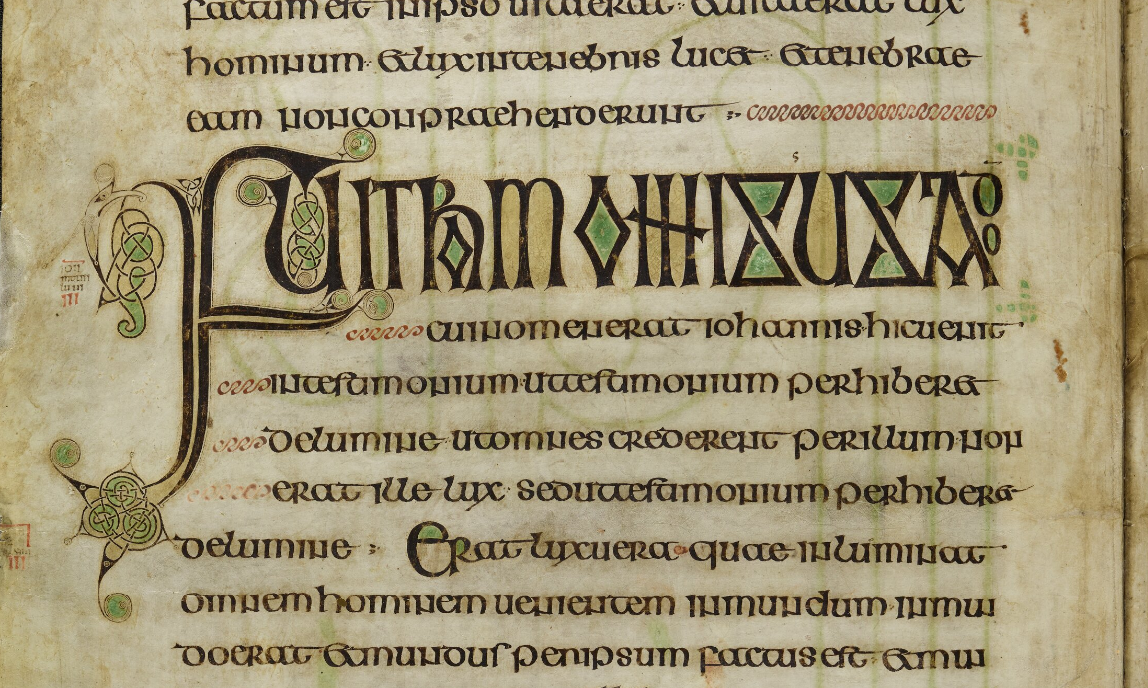 factum est inipso uitaerat· &uitaerat lux
hominum &luxintenebris luc& &tenebrae
eam nonconpraehenderunt
FUITHOMOMISSUSADO
cuinomenerat iohannis·hicuenit
intestimonium·uttestimonium perhiber&
delumine utomnes crederent perillum·non
erat ille lux seduttestimonium perhiber&
delumine Erat luxuera quae inluminat
omnem hominem uenientem inmundum inmun
doerat &mundus peripsum factus est &mun